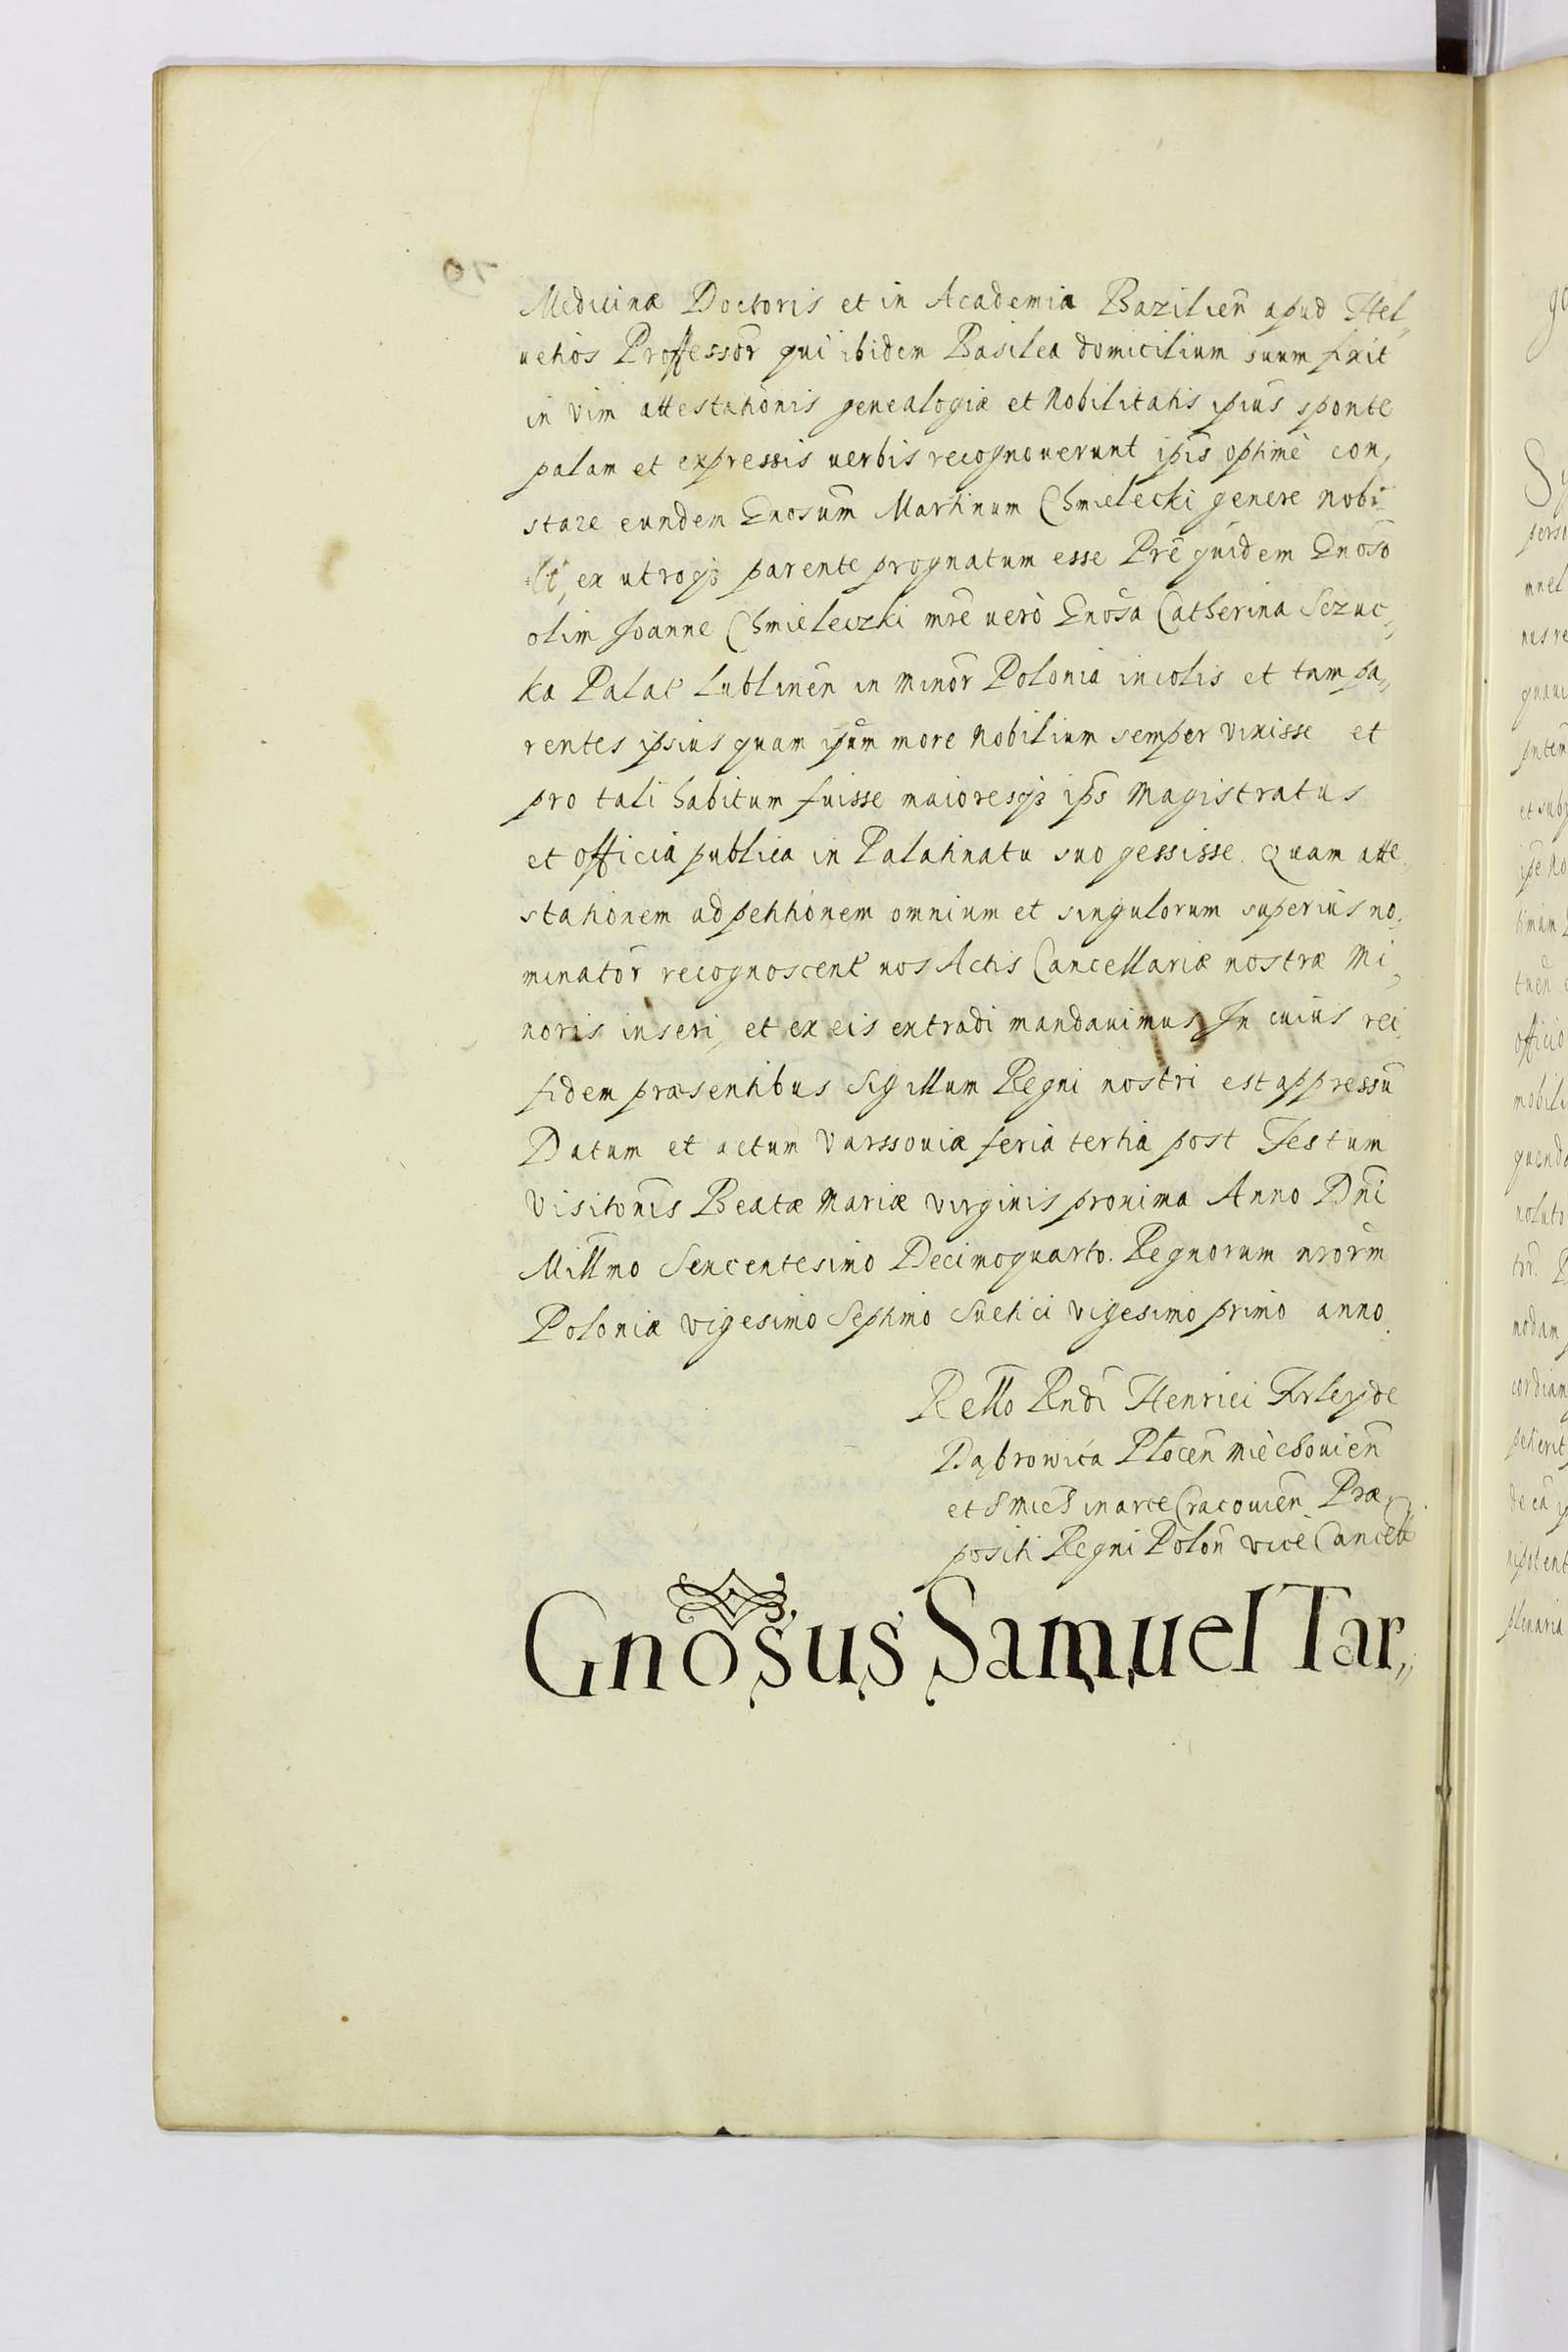 Medicinæ Doctoris et in Academia Bazilień apud Hel,
uetios Proffessor̃ qui ibidem Basilea domicilium suum fixit
in vim attestationis genealogiæ et Nobilitatis ipsius sponte
palam et expressis uerbis recognouerunt ipīs optimè con,
stare eundem Gnosum̃ Martinum Chmielecki genere Nobi
li, ex utroq3 parente prognatum esse Prẽ quidem Gnoso
olim Joanne Chmieleczki mr̃e uerò Gnosa Catherina Sczuc,,
ka Palat Lublineñ in minor̃ Polonia incolis et tam pa,,
rentes ipsius quam ipsum more Nobilium semper vixisse et
pro tali habitum fuisse maioresq3 ip̃s Magistratus
et officia publica in Palatinatu suo gessisse. Quam atte,
stationem ad petitionem omnium et singulorum superius no,
minator̃ recognoscent nos Actis Cancellariæ nostræ Mi,
noris inseri, et ex eis extradi mandauimus, In cuius rei
fidem præsentibus Sigillum Regni nostri est appressũ
Datum et actum Varssouiæ feria tertia post Festum
Visitoñis Beatæ Mariæ virginis proxima Anno Dñi
Millmo Sexcentesimo Decimoquarto. Regnorum nrorm̃
Poloniæ vigesimo Septimo Suetici vigesimo primo anno.
Rello Rndi Henrici Firley de
Dąbrowica Płoceñ Miechouieñ
et S Mich in arce Cracouieñ Præ,
positi Regni Poloñ vice Cancell
Gnosus Samuel Tar,,